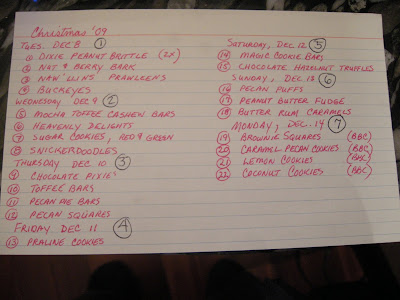 Christmas '09
TUES. DEC 8 ①
① DIXIE PEANUT BRITTLE (2X)
② NUT & BERRY BARK
③ NAW'LINS PRAWLEENS
④ BUCKEYES
WEDNESDAY DEC 9 ②
⑤ MOCHA TOFFEE CASHEW BARS
⑥ HEAVENLY DELIGHTS
⑦ SUGAR COOKIES, RED & GREEN
⑧ SNICKERDOODLES
THURSDAY DEC 10 ③
⑨ CHOCOLATE PIXIES
⑩ TOFFEE BARS
⑪ PECAN PIE BARS
⑫ PECAN SQUARES
FRIDAY DEC 11 ④
⑬ PRALINE COOKIES
SATURDAY, DEC 12 ⑤
⑭ MAGIC COOKIE BARS
⑮ CHOCOLATE HAZELNUT TRUFFLES
SUNDAY, DEC 13 ⑥
⑯ PECAN PUFFS
⑰ PEANUT BUTTER FUDGE
⑱ BUTTER RUM CARAMELS
MONDAY, DEC. 14 ⑦
⑲ BROWNIE SQUARES (BBC)
⑳ CARAMEL PECAN COOKIES (BBC)
㉑ LEMON COOKIES (BBC)
㉒ COCONUT COOKIES (BBC)